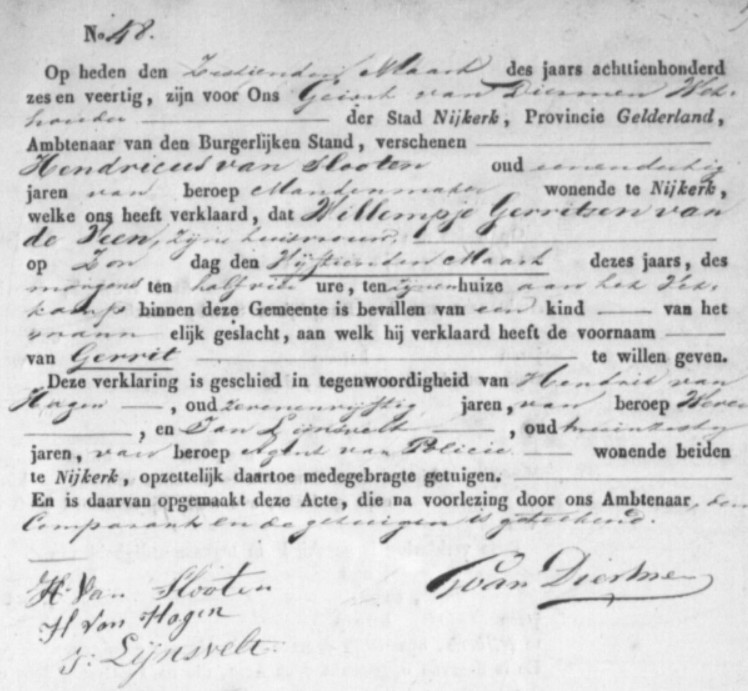 No. 48.
Op heden den Zestienden Maart des jaars achttienhonderd
zes en veertig, zijn voor Ons Gerrit van Diermen Wet-
houder der Stad Nijkerk, Provincie Gelderland,
Ambtenaar van den Burgerlijken Stand, verschenen
Hendricus van Slooten oud eenendertig
jaren van beroep Mandenmaker wonende te Nijkerk,
welke ons heeft verklaard, dat Willempje Gerritsen van
de Veen, zijne huisvrouw,
op Zon dag den Vijftienden Maart dezes jaars, des
morgens ten half ure, ten zijnen huize aan het
kamp binnen deze Gemeente is bevallen van een kind van het
mann elijk geslacht, aan welk hij verklaard heeft de voornaam
van Gerrit te willen geven.
Deze verklaring is geschied in tegenwoordigheid van Hendrik van
Hagen, oud zevenenvijftig jaren, van beroep Wever
, en Jan Lijnsvelt, oud
jaren, van beroep Agent van Policie wonende beiden
te Nijkerk, opzettelijk daartoe medegebragte getuigen.
En is daarvan opgemaakt deze Acte, die na voorlezing door ons Ambtenaar, den
Comparant en de getuigen is geteekend.
H. Van Slooten
GvanDiermen
H Von Hagen
J: Lijnsvelt